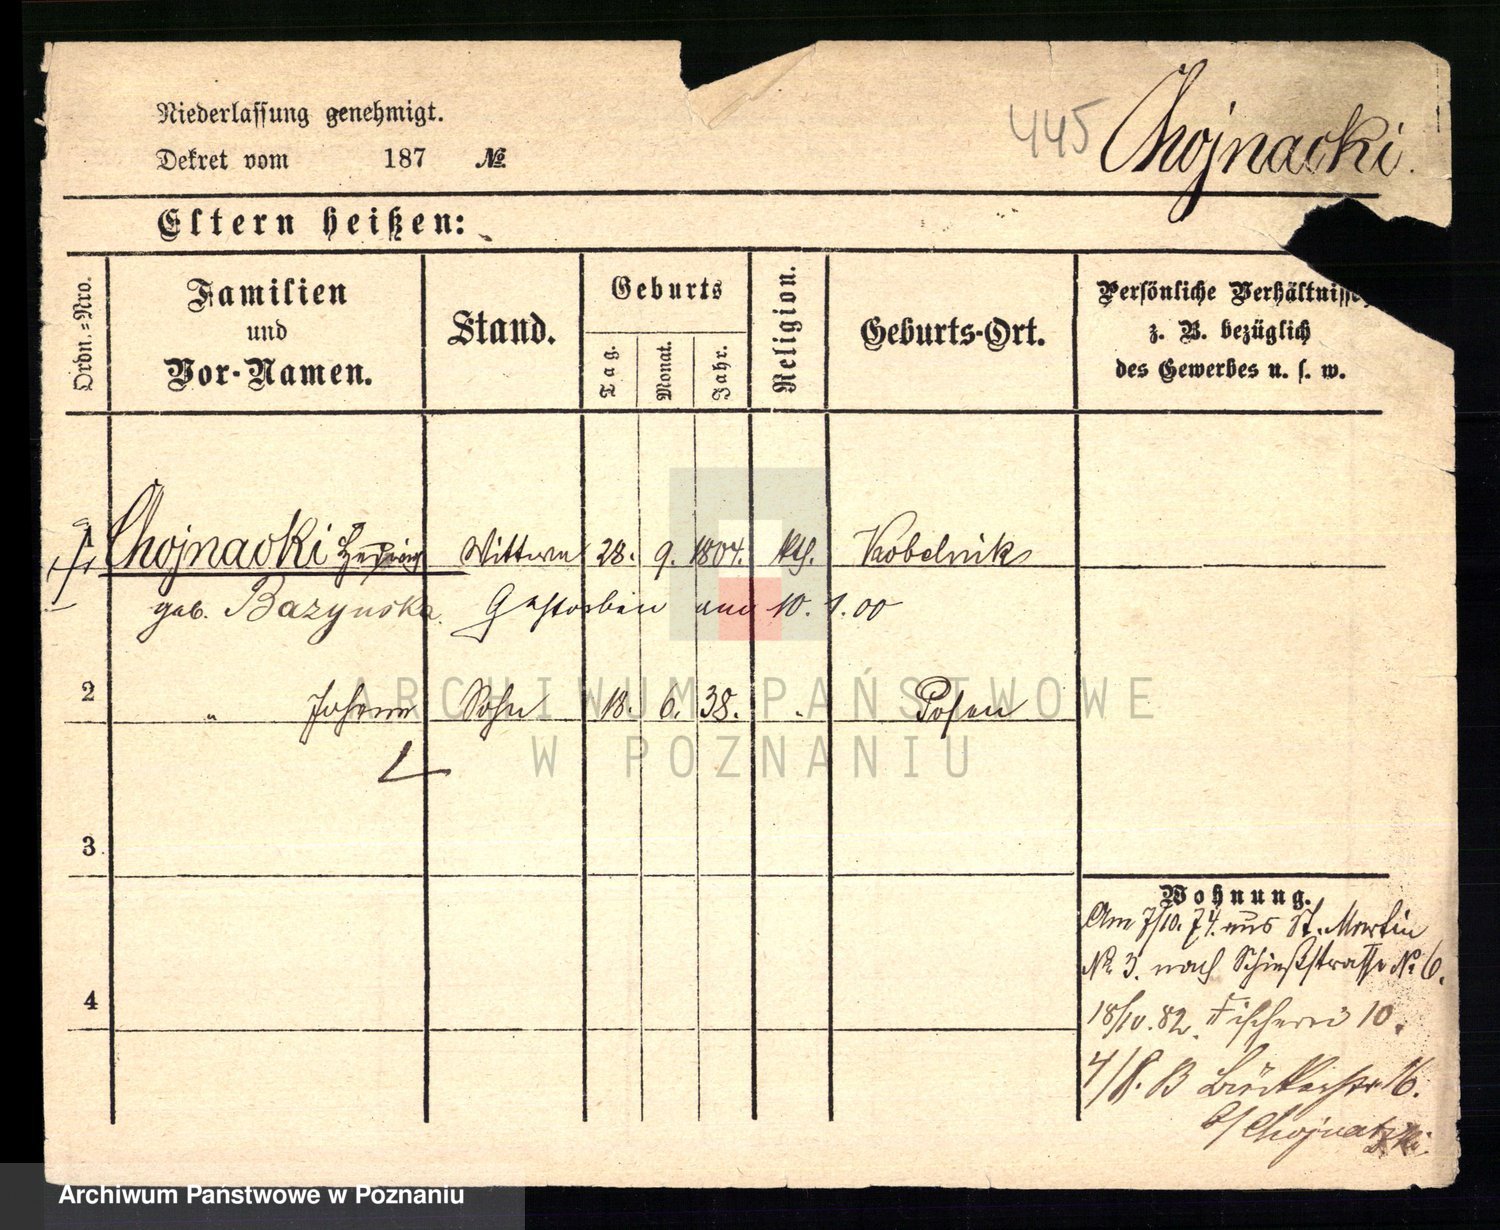 Niederlassung genehmigt.
Dekret vom 187 №
445 Chojnacki.
Eltern heißen:
Ordn.=Nro.
Familien
und
Vor-Namen.
Stand.
Geburts
Tag.
Monat.
Jahr.
Religion.
Geburts-Ort.
Persönliche Verhältnisse,
z. B. bezüglich
des Gewerbes u. s. w.
1 Chojnacki Hedwig Wittwe 28. 9. 1804. kth. Kobelnik
geb. Bazynska. Gestorben am 10. 1.00
2 " Johann Sohn 18. 6. 38. " Posen
3
4
Wohnung.
Am 7/10. 74. aus St. Martin
№ 3. nach Schießstrasse № 6.
18/10. 82. Fischerei 10.
4/8. 16.
b/ Chojnatzki
ARCHIWUM PAŃSTWOWE
W POZNANIU
Archiwum Państwowe w Poznaniu